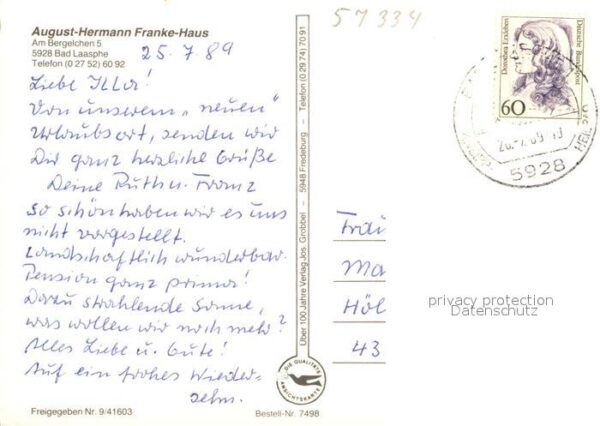 August-Hermann Franke-Haus
Am Bergelchen 5
5928 Bad Laasphe
Telefon (0 27 52) 60 92
25.7.89
Liebe Illa!
Von unserem „neuen"
Urlaubsort, senden wir
Dir ganz herzliche Grüße
Deine Ruth u. Franz
So schön haben wir es uns
nicht vorgestellt.
Landschaftlich wunderbar.
Pension ganz prima!
Dazu strahlende Sonne,
was wollen wir noch mehr?
Alles Liebe u. Gute!
Auf ein frohes Wieder-
sehn.
Freigegeben Nr. 9/41603
Bestell-Nr. 7498
Über 100 Jahre Verlag Jos. Grobbel – 5948 Fredeburg – Telefon (0 29 74) 70 91
DIE QUALITÄTS
ANSICHTSKARTE
57334
Dorothea Erxleben
Deutsche Bundespost
60
5928
Fräu
Ma
Höl
43
privacy protection
Datenschutz